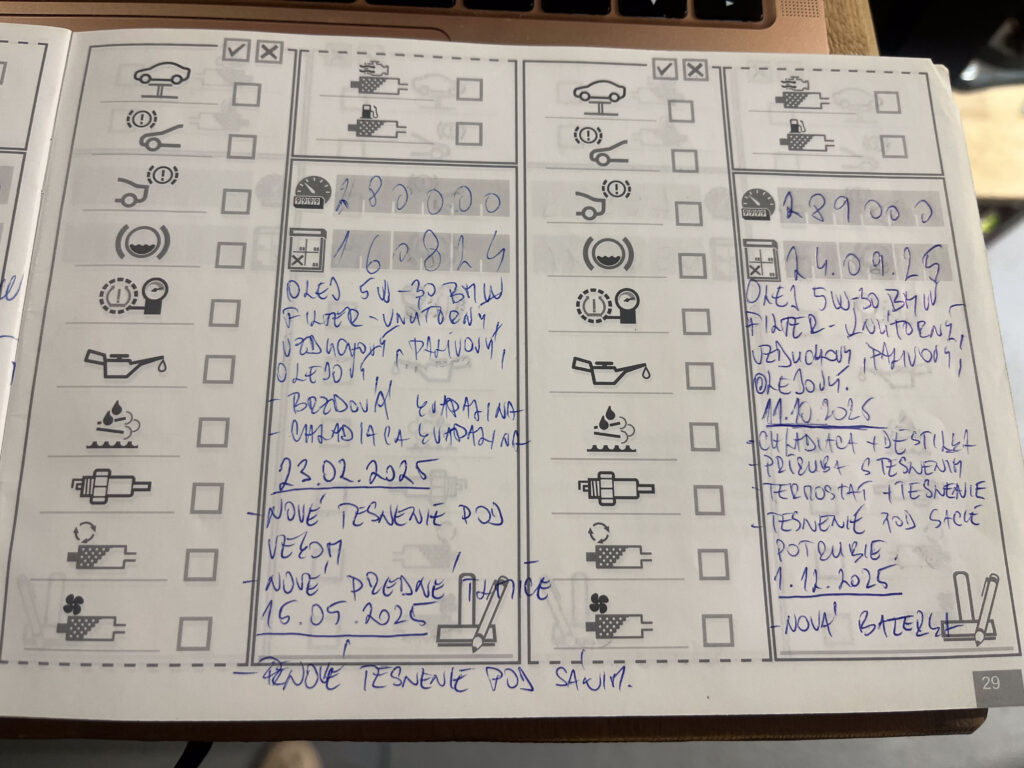 280000
160824
OLEJ 5W-30 BMW
FILTER-VNÚTORNÝ,
VZDUCHOVÝ, PALIVOVÝ,
OLEJOVÝ,
- BRZDOVÁ KVAPALINA
- CHLADIACA KVAPALINA
23.02.2025
- NOVÉ TESNENIE POD
VEKOM
- NOVÉ PREDNÉ TLMIČE
15.05.2025
- NOVÉ TESNENIE POD SANIM.
289000
24.09.25
OLEJ 5W-30 BMW
FILTER-VNÚTORNÝ,
VZDUCHOVÝ, PALIVOVÝ,
OLEJOVÝ.
11.10.2025
- CHLADIACA + DESTILKA
- PRÍRUBA S TESNENIM
- TERMOSTAT + TESNENIE
- TESNENIE POD SACIE
POTRUBIE.
1.12.2025
- NOVÁ BATERKA
29